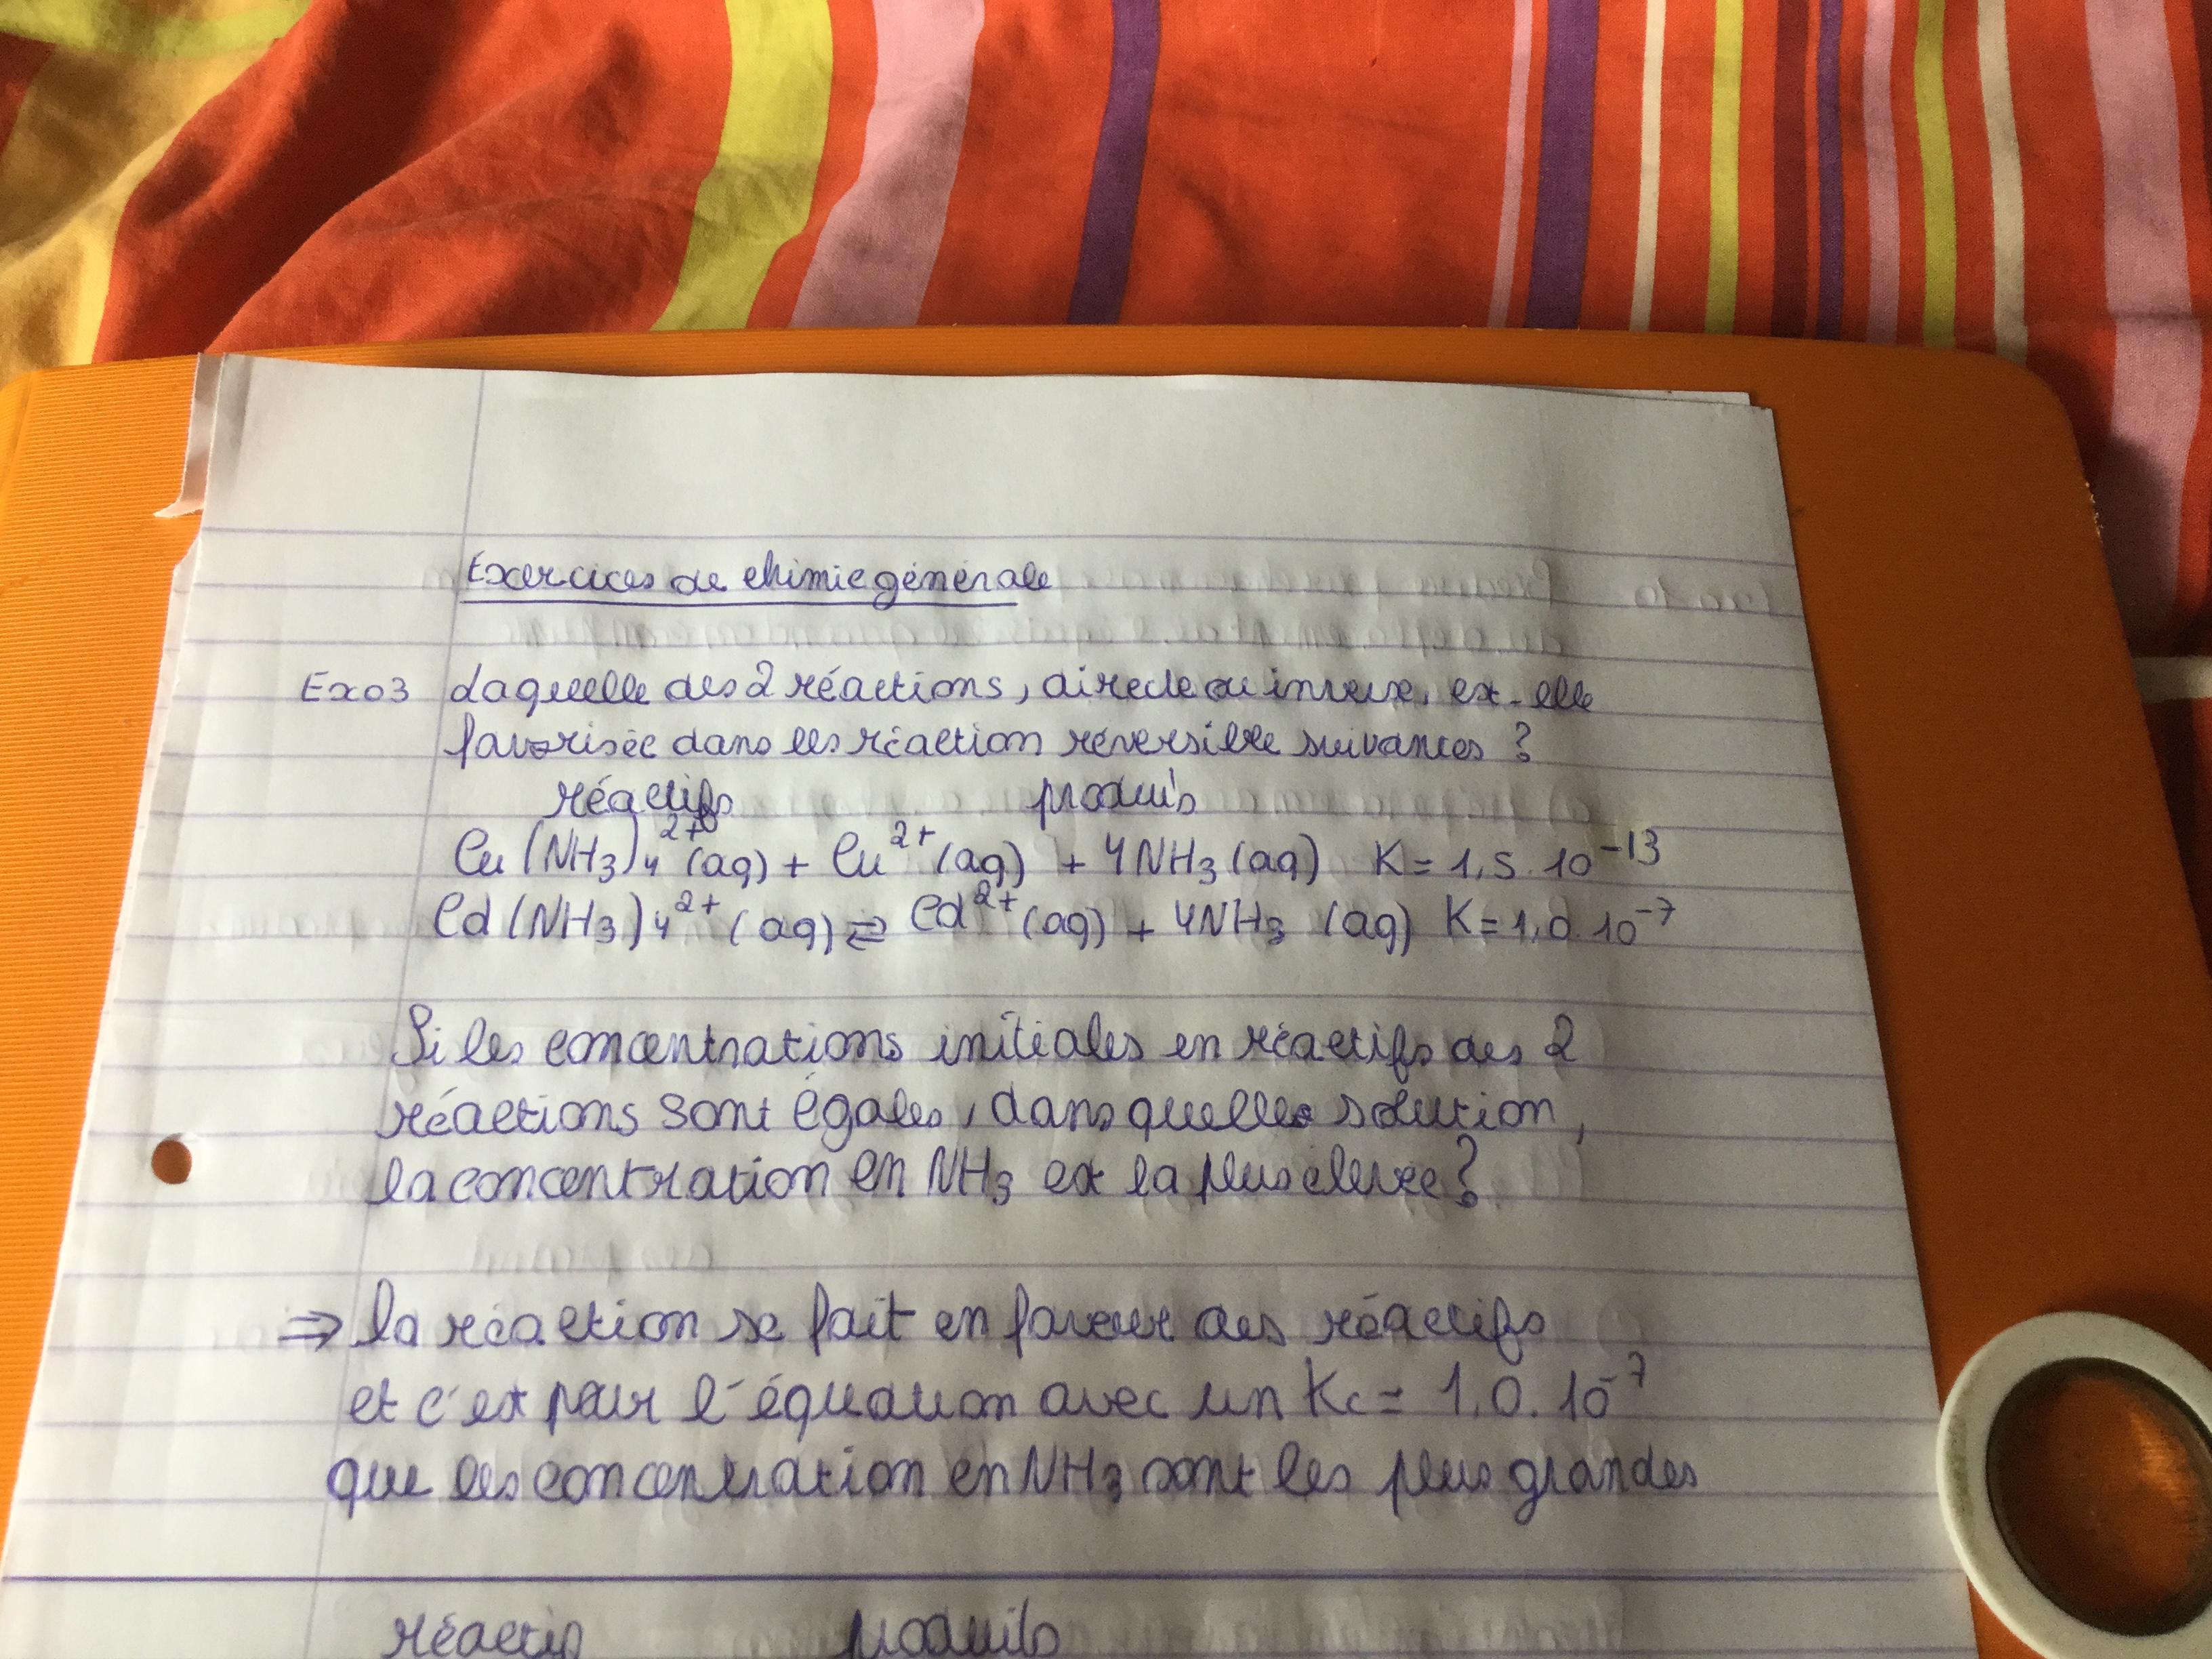 Exercices de chimie générale
Exo3 Laquelle des 2 réactions, directe ou inverse, est-elle
favorisée dans les réaction réversible suivantes ?
réactifs produis
Cu(NH3)4 2+ (aq) + Cu 2+ (aq) + 4NH3 (aq) K = 1,5.10 -13
Cd(NH3)4 2+ (aq) ⇄ Cd 2+ (aq) + 4NH3 (aq) K = 1,0.10 -7
Si les concentrations initiales en réactifs des 2
réactions sont égales, dans quelle solution,
la concentration en NH3 est la plus élevée ?
⇒ la réaction se fait en faveur des réactifs
et c'est pour l'équation avec un Kc = 1,0.10 -7
que les concentration en NH3 sont les plus grandes
réactif produits